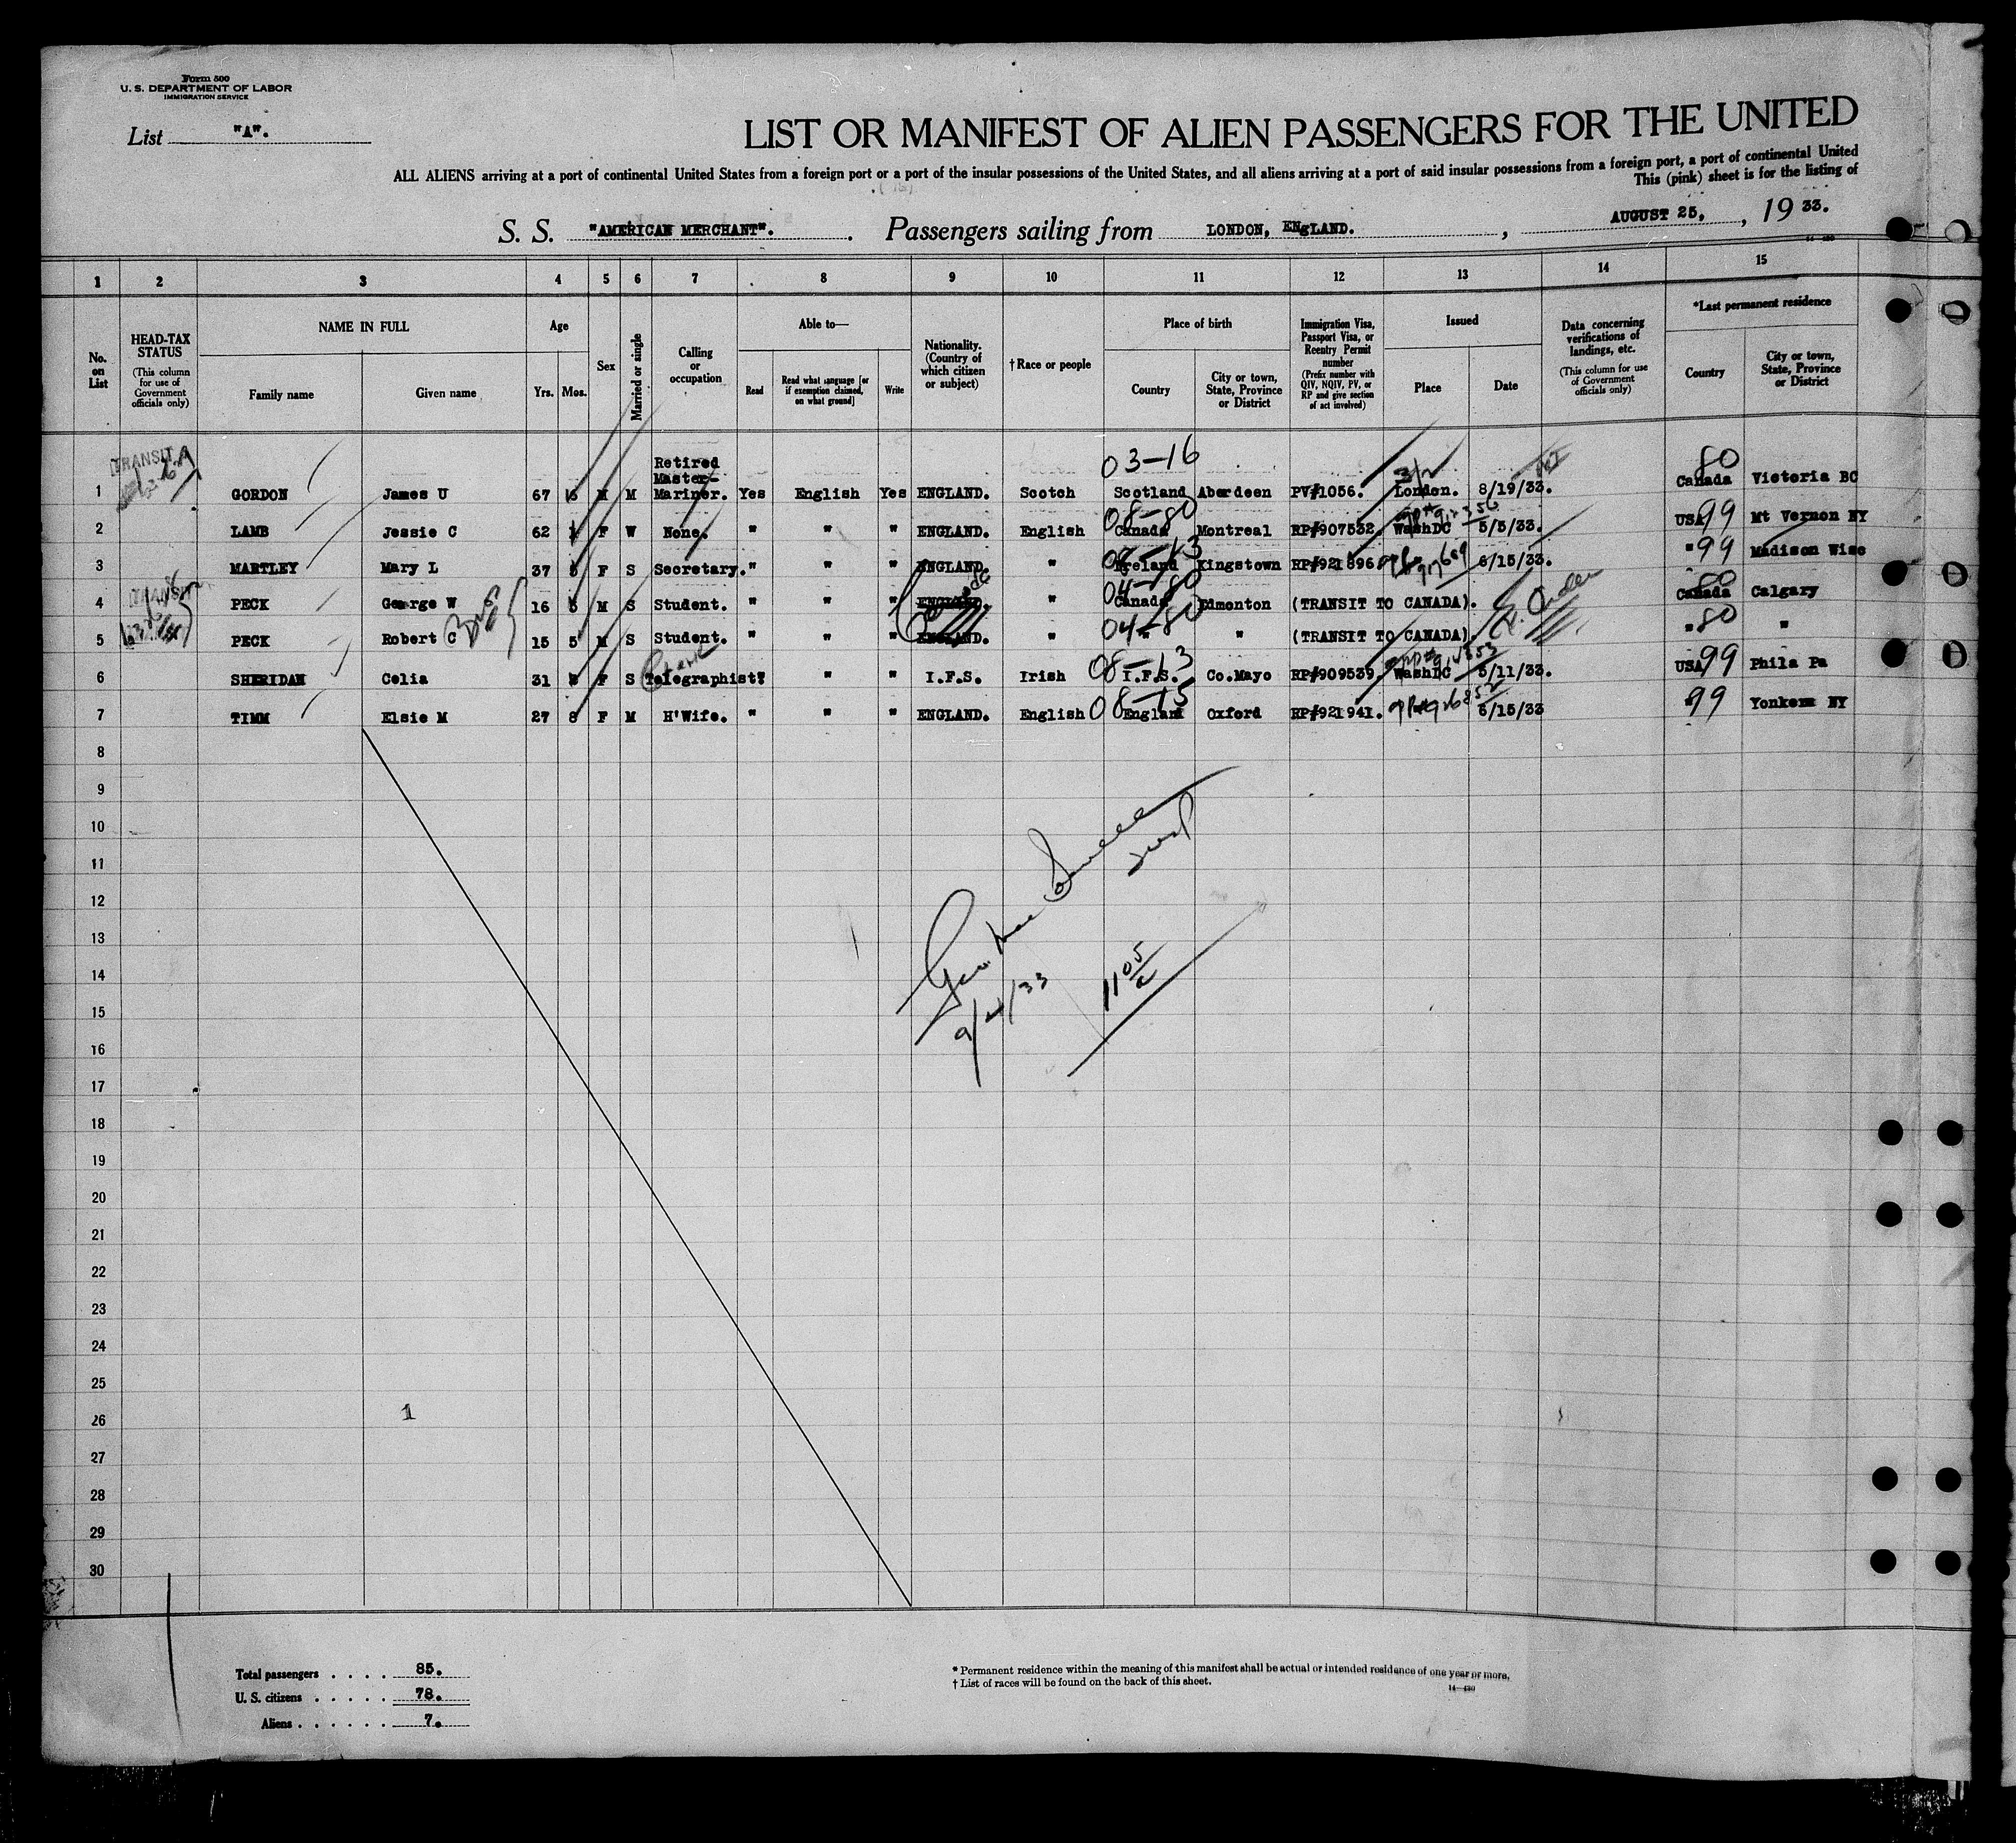 Form 500
U. S. DEPARTMENT OF LABOR
IMMIGRATION SERVICE
List "A".
LIST OR MANIFEST OF ALIEN PASSENGERS FOR THE UNITED
ALL ALIENS arriving at a port of continental United States from a foreign port or a port of the insular possessions of the United States, and all aliens arriving at a port of said insular possessions from a foreign port, a port of continental United
This (pink) sheet is for the listing of
S. S. "AMERICAN MERCHANT". Passengers sailing from LONDON, ENgLAND. , AUGUST 25, , 19 33.
1 2 3 4 5 6 7 8 9 10 11 12 13 14 15
No. on List
HEAD-TAX STATUS (This column for use of Government officials only)
NAME IN FULL Family name Given name
Age Yrs. Mos.
Sex
Married or single
Calling or occupation
Able to— Read Read what language [or if exemption claimed, on what ground] Write
Nationality. (Country of which citizen or subject)
†Race or people
Place of birth Country City or town, State, Province or District
Immigration Visa, Passport Visa, or Reentry Permit number (Prefix number with QIV, NQIV, PV, or RP and give section of act involved)
Issued Place Date
Data concerning verifications of landings, etc. (This column for use of Government officials only)
*Last permanent residence Country City or town, State, Province or District
TRANSIT 03-16 80
1 GORDON James U 67 M M Retired Master-Mariner. Yes English Yes ENGLAND. Scotch Scotland Aberdeen PV#1056. London. 8/19/33. Canada Victoria BC
08-80
2 LAMB Jessie C 62 F W None. " " " ENGLAND. English Canada Montreal RP#907532. WashDC 5/5/33. USA 99 Mt Vernon NY
08-13
3 MARTLEY Mary L 37 F S Secretary. " " " ENGLAND. " Ireland Kingstown RP#921896. 6/15/33. " 99 Madison Wisc
TRANSIT 04-80 80
4 PECK George W 16 5 M S Student. " " " ENGLAND. Canada " Canada Edmonton (TRANSIT TO CANADA). Canada Calgary
04-80
5 PECK Robert C 15 5 M S Student. " " " ENGLAND. " " " (TRANSIT TO CANADA). " 80 "
08-13
6 SHERIDAN Celia 31 F S Telegraphist. " " " I.F.S. Irish I.F.S. Co.Mayo RP#909539. WashDC 5/11/33. USA 99 Phila Pa
08-15
7 TIMM Elsie M 27 8 F M H'Wife. " " " ENGLAND. English England Oxford RP#921941. 6/15/33 " 99 Yonkers NY
8
9
10
11
12
13
14
15
16
17
18
19
20
21
22
23
24
25
26
27
28
29
30
9/4/33
1
Total passengers . . . . 85.
U. S. citizens . . . . . 78.
Aliens . . . . . . 7.
* Permanent residence within the meaning of this manifest shall be actual or intended residence of one year or more.
† List of races will be found on the back of this sheet.
14—430